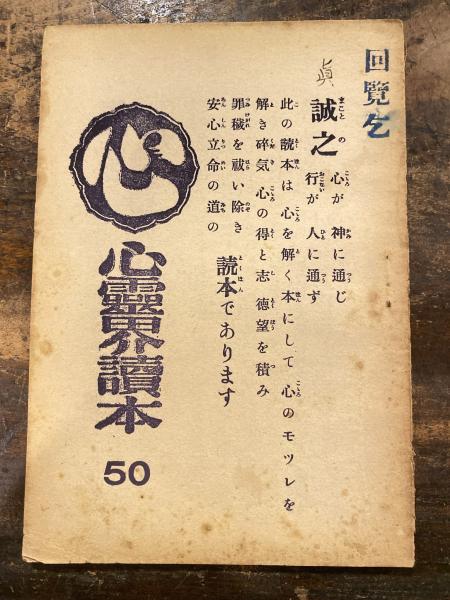 回覧乞
眞
誠之
心が 神に通じ
行が 人に通ず
此の読本は 心を解く本にして 心のモツレを
解き碎気 心の得と志 徳望を積み
罪穢を祓い除き
安心立命の道の
読本であります
心
心靈界讀本
50